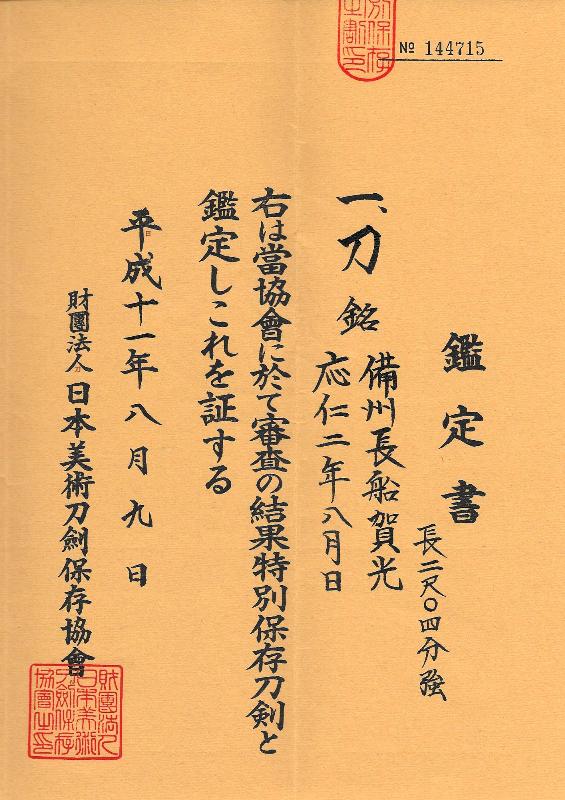 № 144715
鑑定書
長二尺〇四分強
一、刀 銘 備州長船賀光
応仁二年八月日
右は當協會に於て審査の結果特別保存刀剣と
鑑定しこれを証する
平成十一年八月九日
財團法人日本美術刀劍保存協會
財團法人
日本美術
刀劍保存
協會之印